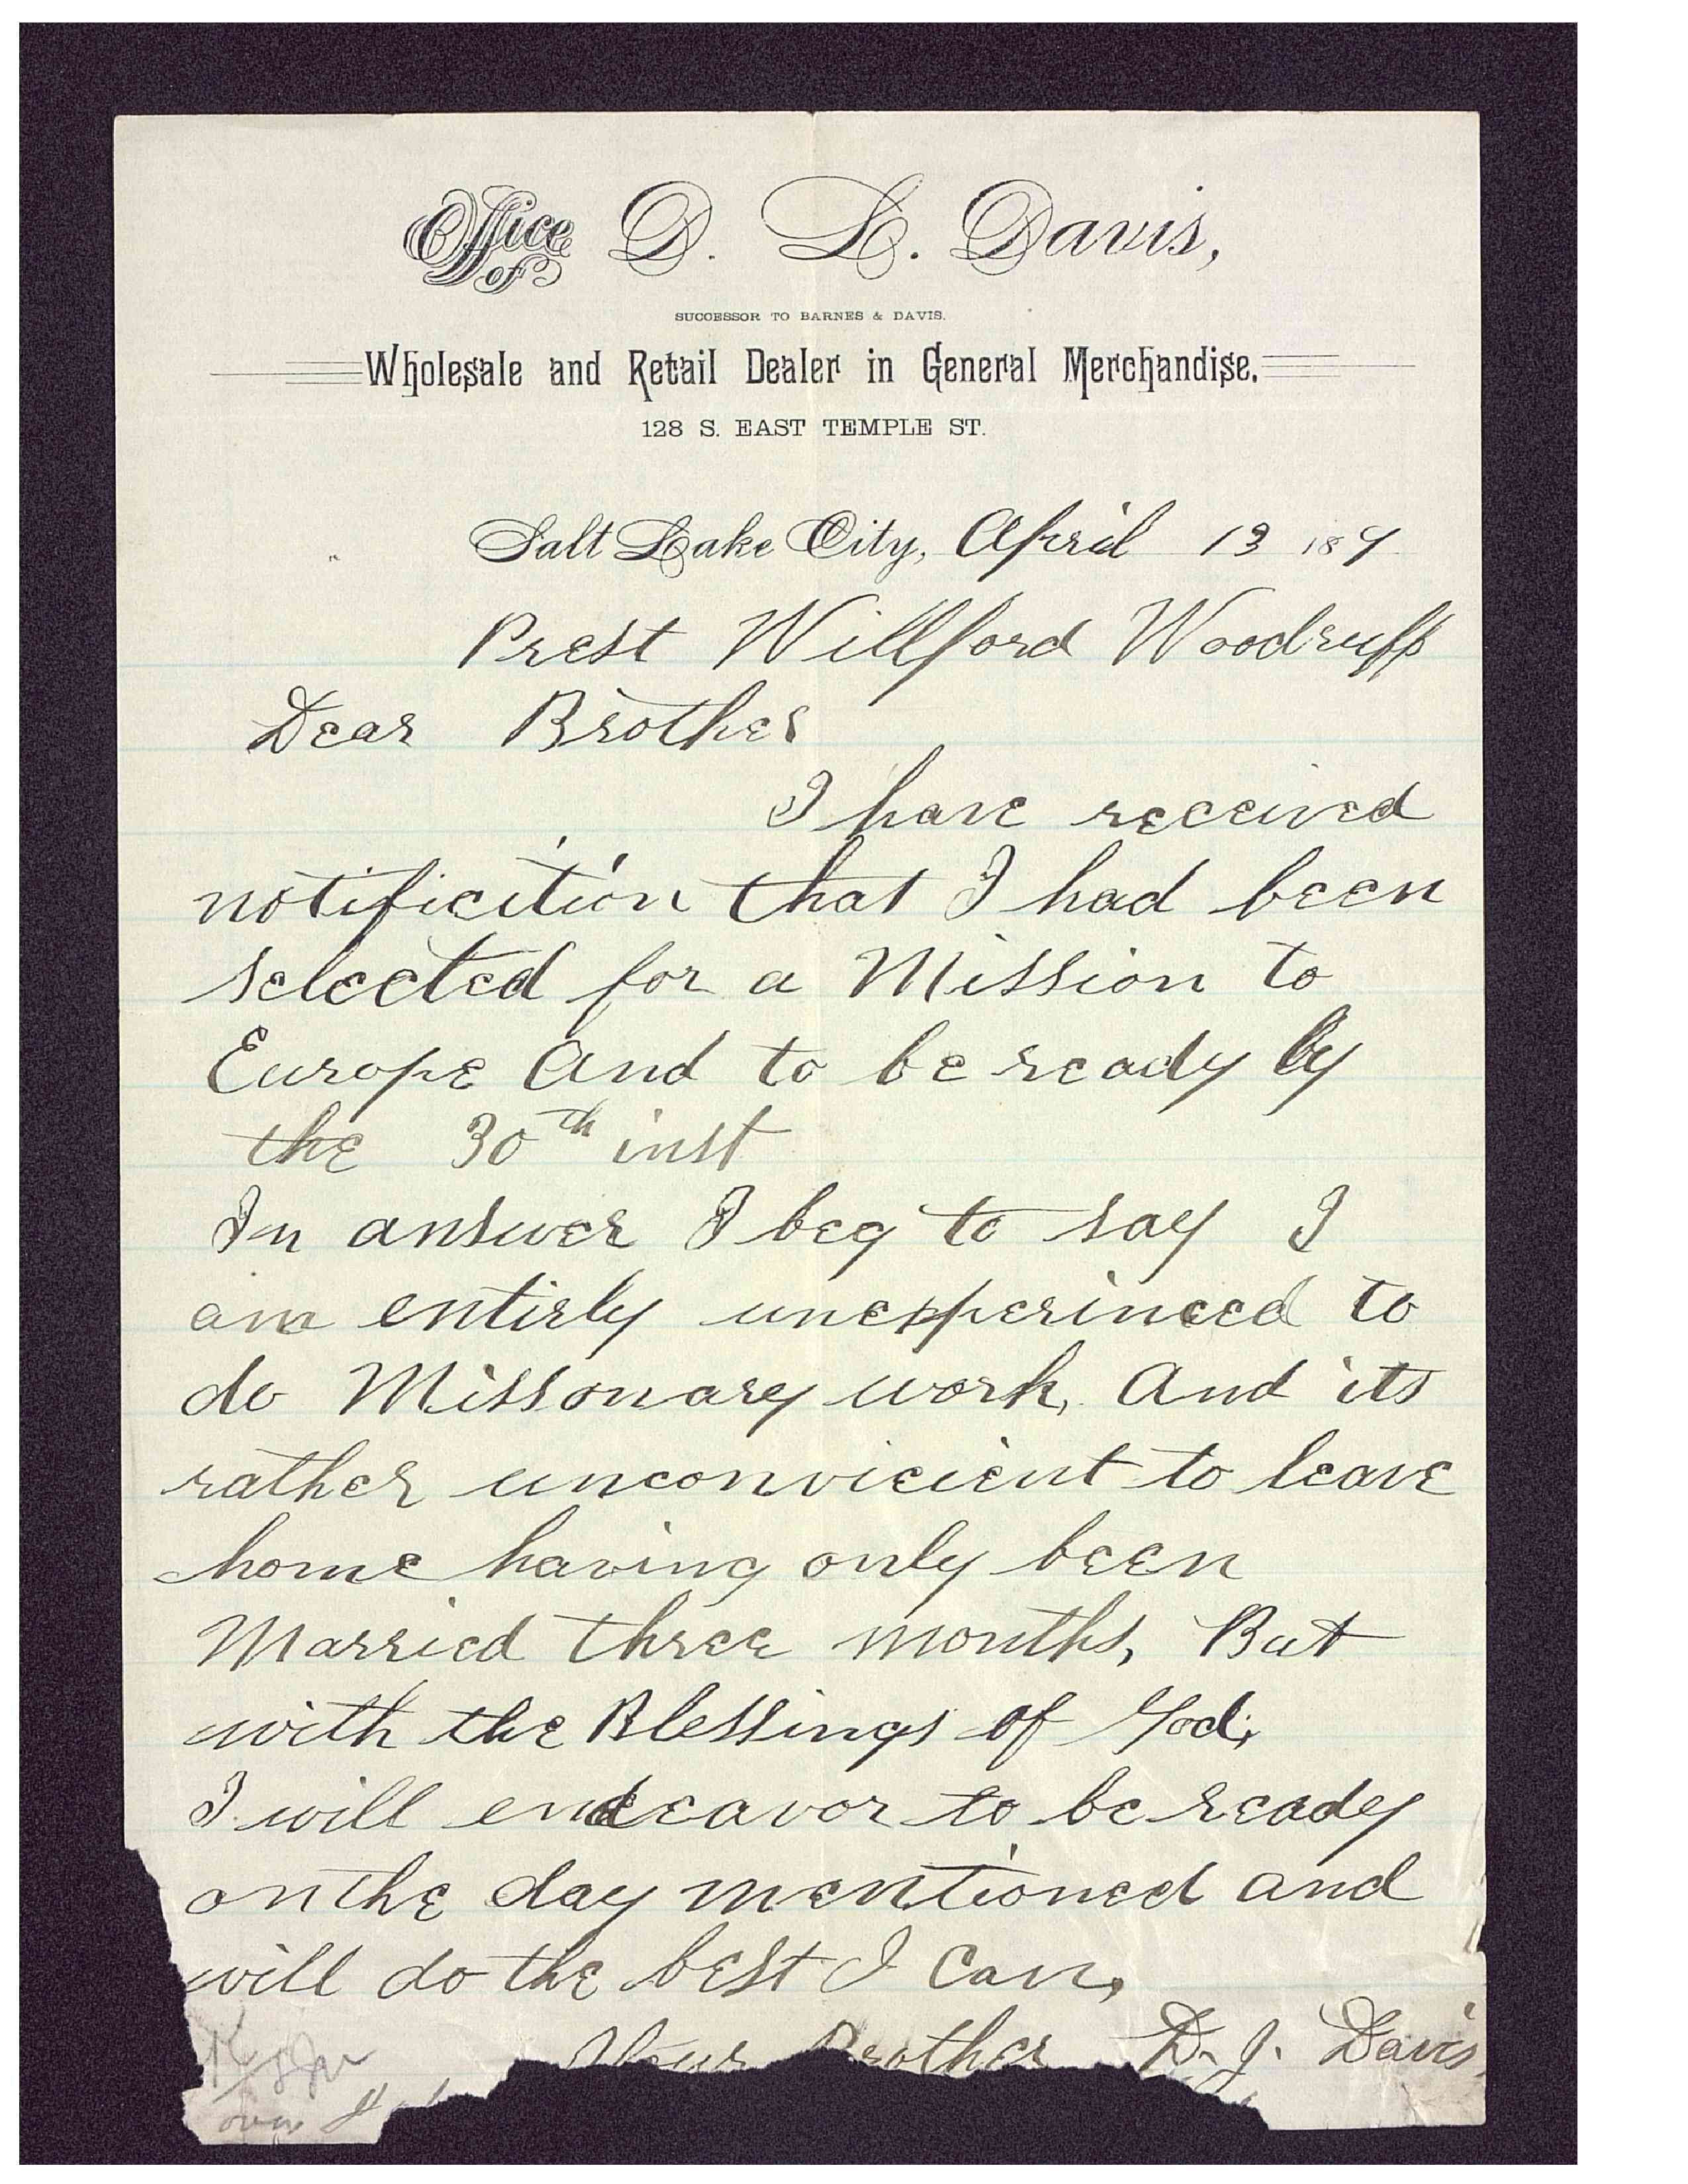 Office of D. L. Davis,
SUCCESSOR TO BARNES & DAVIS.
Wholesale and Retail Dealer in General Merchandise.
128 S. EAST TEMPLE ST.
Salt Lake City, April 13 189
Prest Willford Woodruff
Dear Brother
I have received
notificition that I had been
selected for a Mission to
Europe And to be ready by
the 30th inst
In answer I beg to say I
am entirly unexperinced to
do Missonary work, And its
rather unconvicient to leave
home having only been
Married three months, But
with the Blessings of God,
I will endeavor to be ready
on the day mentioned and
will do the best I can,
Your Brother D. J. Davis